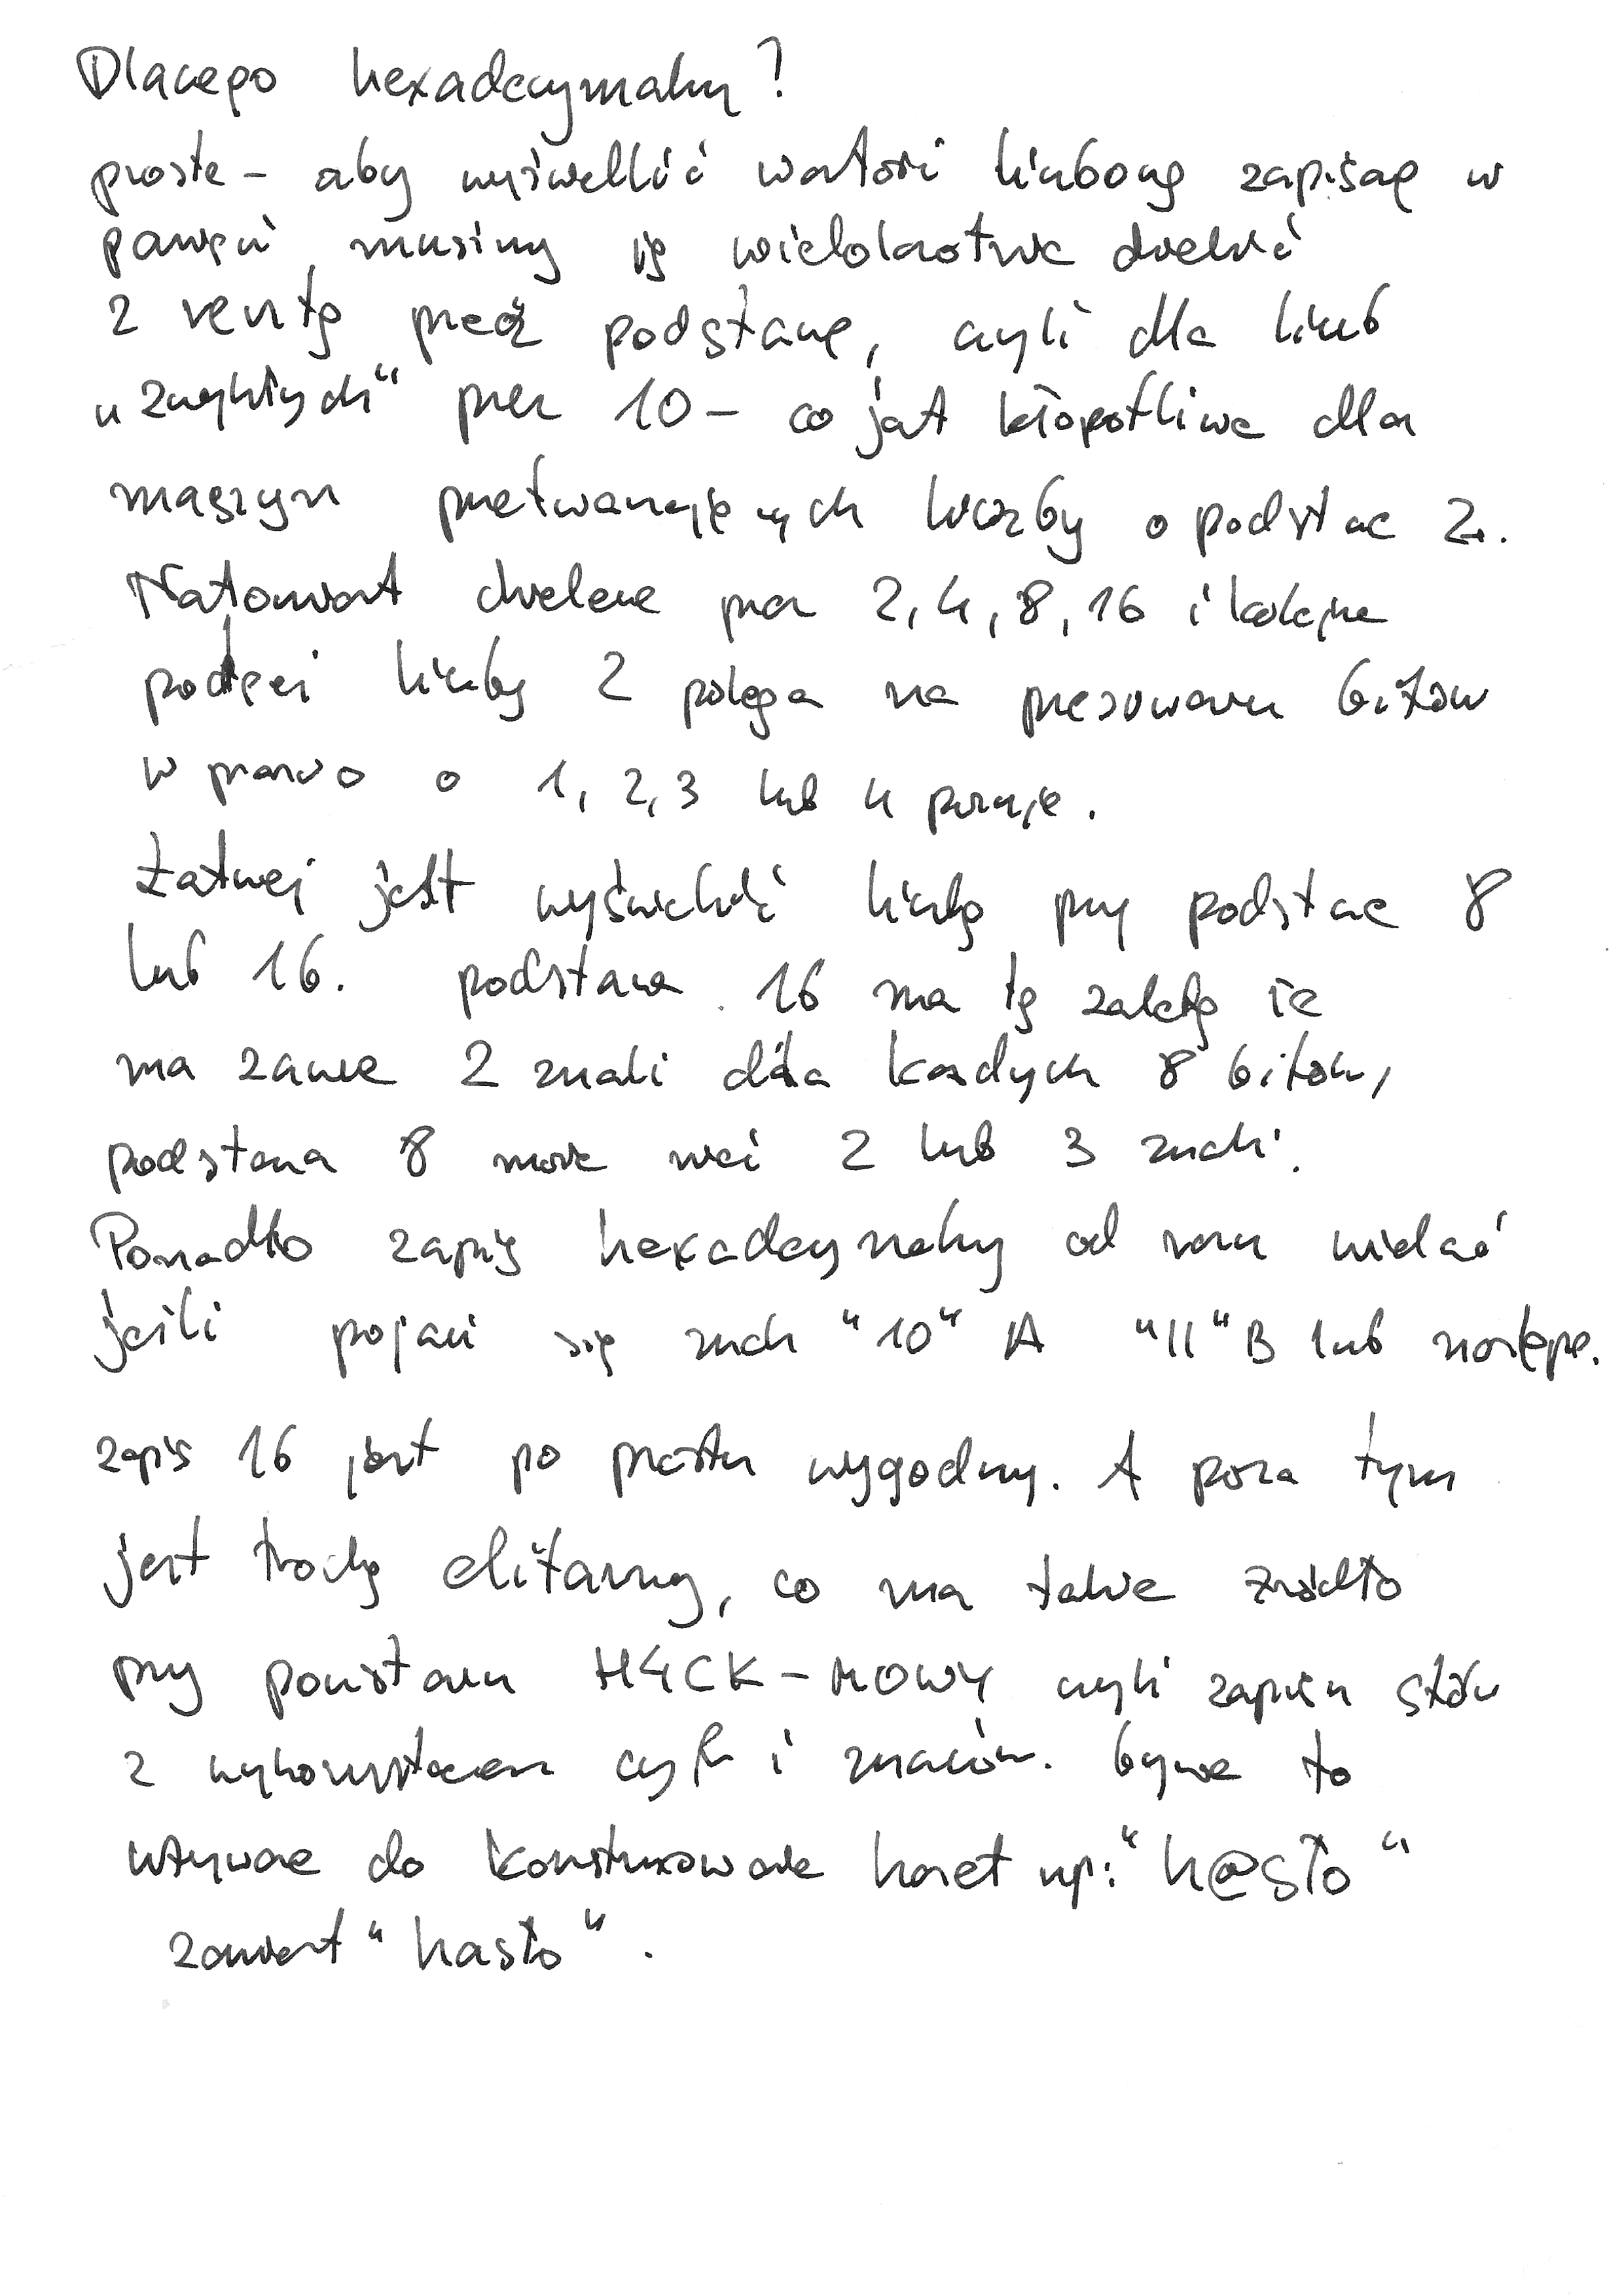 Dlaczego hexadecymalny?
proste – aby wyświetlić wartość liczbową zapisaną w
pamięci, musimy ją wielokrotnie dzielić
z resztą przez podstawę, czyli dla liczb
„zwykłych“ przez 10 – co jest kłopotliwe dla
maszyn przetwarzających liczby o podstawie 2.
Natomiast dzielenie przez 2, 4, 8, 16 i kolejne
potęgi liczby 2 polega na przesuwaniu bitów
w prawo o 1, 2, 3 lub 4 pozycje.
Łatwiej jest wyświetlić liczbę przy podstawie 8
lub 16. podstawa 16 ma tę zaletę że
ma zawsze 2 znaki dla każdych 8 bitów,
podstawa 8 może mieć 2 lub 3 znaki.
Ponadto zapis hexadecymalny od razu widać
jeśli pojawi się znak "10" A "11" B lub następne.
zapis 16 jest po prostu wygodny. A poza tym
jest trochę elitarny, co ma także źródło
przy powstaniu H4CK-MOWY czyli zapisu słów
z wykorzystaniem cyfr i znaków. bywa to
używane do konstruowania haseł np: "h@sło"
zamiast "hasło".